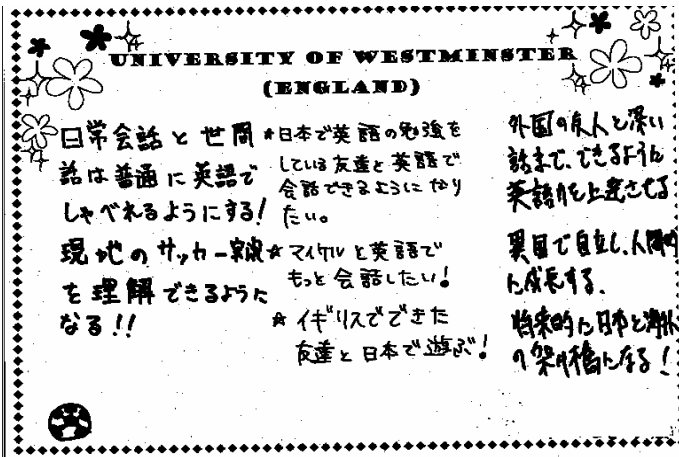 UNIVERSITY OF WESTMINSTER
(ENGLAND)
日常会話と世間
話は普通に英語で
しゃべれるようにする!
現地のサッカー実況
を理解できるように
なる!!
★日本で英語の勉強を
している友達と英語で
会話できるようになり
たい。
★マイケルと英語で
もっと会話したい!
★イギリスでできた
友達と日本で遊ぶ!
外国の友人と深い
話まで、できるように
英語力を上達させる
異国で自立し、人間的
に成長する。
将来的に日本と海外
の架け橋になる!